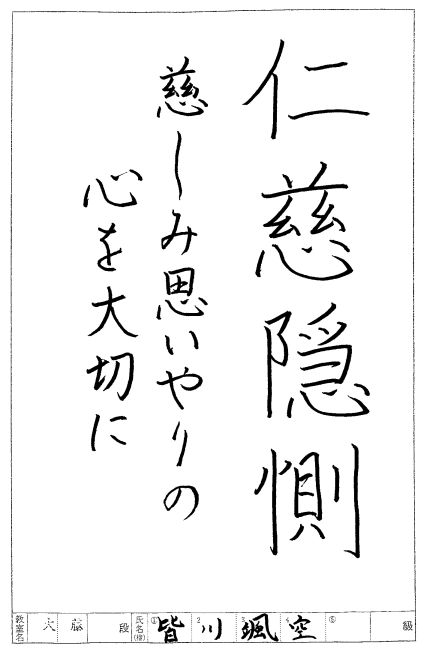 仁慈隠惻
慈しみ思いやりの
心を大切に
教室名 大藤 段 氏名(号) ① 皆 2 川 3 颯 4 空 ⑤ 級